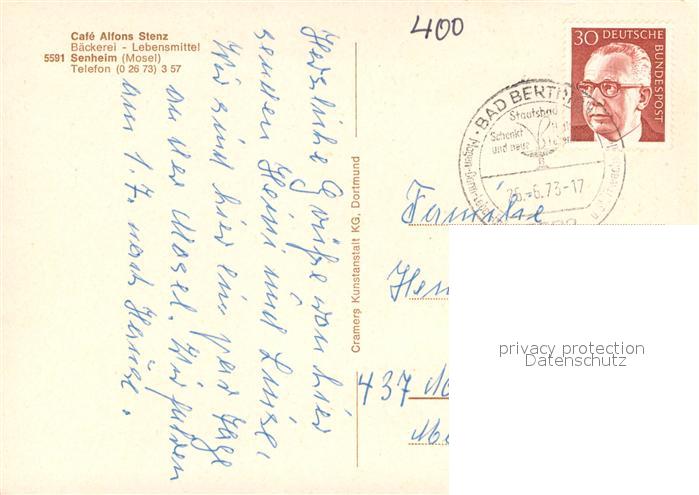 Café Alfons Stenz
Bäckerei - Lebensmittel
5591 Senheim (Mosel)
Telefon (0 26 73) 3 57
Herzliche Grüße von hier
senden Heini und Luise.
Wir sind hier ein paar Tage
an der Mosel. Wir fahren
am 1.7. nach Hause.
Cramers Kunstanstalt KG, Dortmund
400
30 DEUTSCHE
BUNDESPOST
BAD BERTRICH
Staatsbad
Schenkt
und neue
26.-6.73-17
Familie
437
privacy protection
Datenschutz